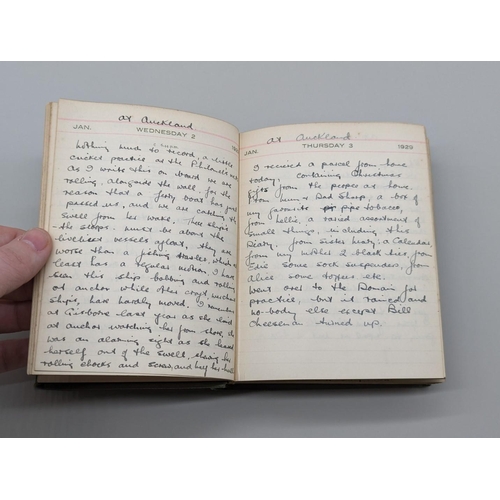 at Auckland
JAN. WEDNESDAY 2 193
Nothing much to record, a little
cricket practice at the Philomel
As I write this on board we are
rolling alongside the wall, for the
reason that a ferry boat has just
passed us, and we are catching the
swell from her wake. These ships
- the sloops, must be about the
liveliest vessels afloat, they are
worse than a fishing trawler, which at
least has a regular motion. I have
seen this ship bobbing and rolling
at anchor while the cargo, merchant
ships, have hardly moved. I remember
at Gisborne last year as she lay
at anchor watching her from shore, she
was an alarming sight as she heaved
herself out of the swell, showing her
rolling chocks and screws, and
at Auckland
JAN. THURSDAY 3 1935
I received a parcel from home
today, containing Christmas
gifts from the people at home.
From Mum & Dad Sharp, a box of
my favourite pipe tobacco,
from Nellie, a varied assortment of
small things, including this
Diary. From sister Mary, a Calendar,
from my mother 2 black ties, from
Eric some sock suspenders, from
Alice some toffees etc.
Went over to the Domain for
practice, but it rained and
no-body else except Bill
Cheeseman turned up.